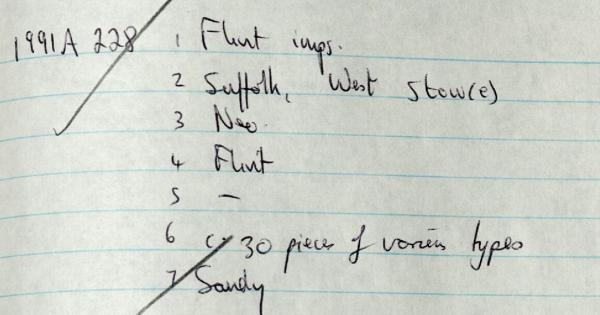 1991A 228 1 Flint imps.
2 Suffolk, West Stow(e)
3 Neo.
4 Flint
5 —
6 c. 30 pieces of various types
7 Sandy